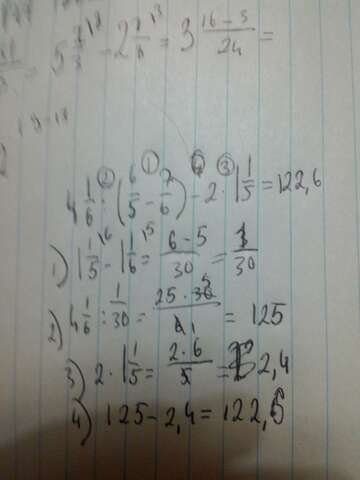 5 7/8 - 2 7/8 = 3 (16 - 3)/24 =
4 1/6 : (6/5 - 7/6) - 2 · 1 1/5 = 122,6
1) 1 1/5 - 1 1/6 = (6 - 5)/30 = 1/30
2) 4 1/6 : 1/30 = (25 · 30)/(6 · 1) = 125
3) 2 · 1 1/5 = (2 · 6)/5 = 2,4
4) 125 - 2,4 = 122,6